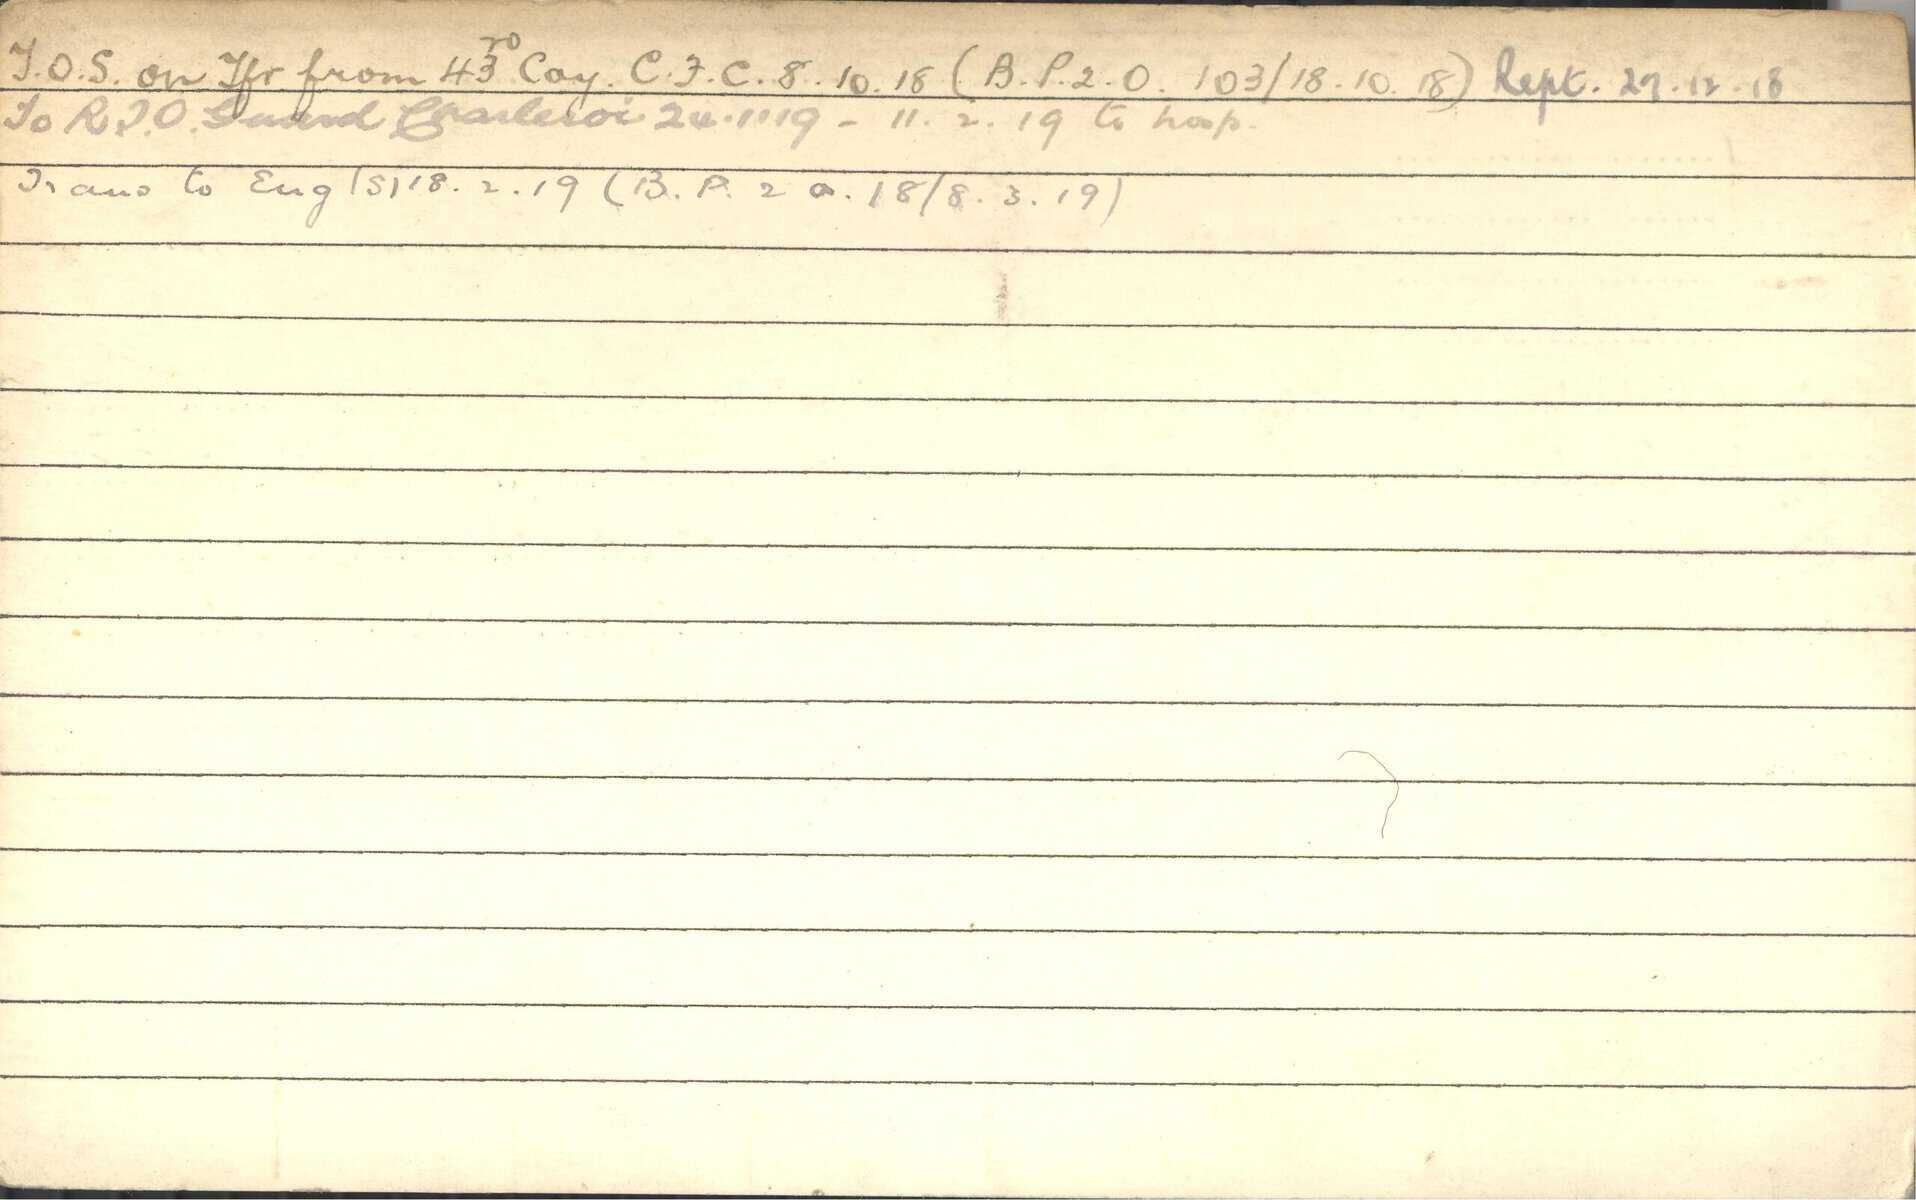 T.O.S. on Tfr from 43rd Coy. C.F.C. 8.10.18 (B.P.2.O. 103/18.10.18) Rept. 27.12.18
To R.T.O. Guard Charleroi 24.1.19 - 11.2.19 to hosp.
Trans to Eng (S) 18.2.19 (B.P. 2 O. 18/8.3.19)